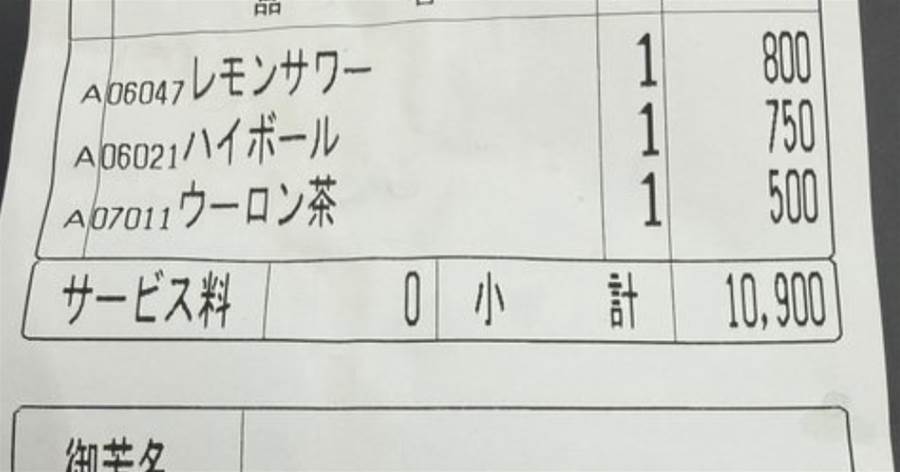 品 名
A06047レモンサワー 1 800
A06021ハイボール 1 750
A07011ウーロン茶 1 500
サービス料 0 小計 10,900
御芳名